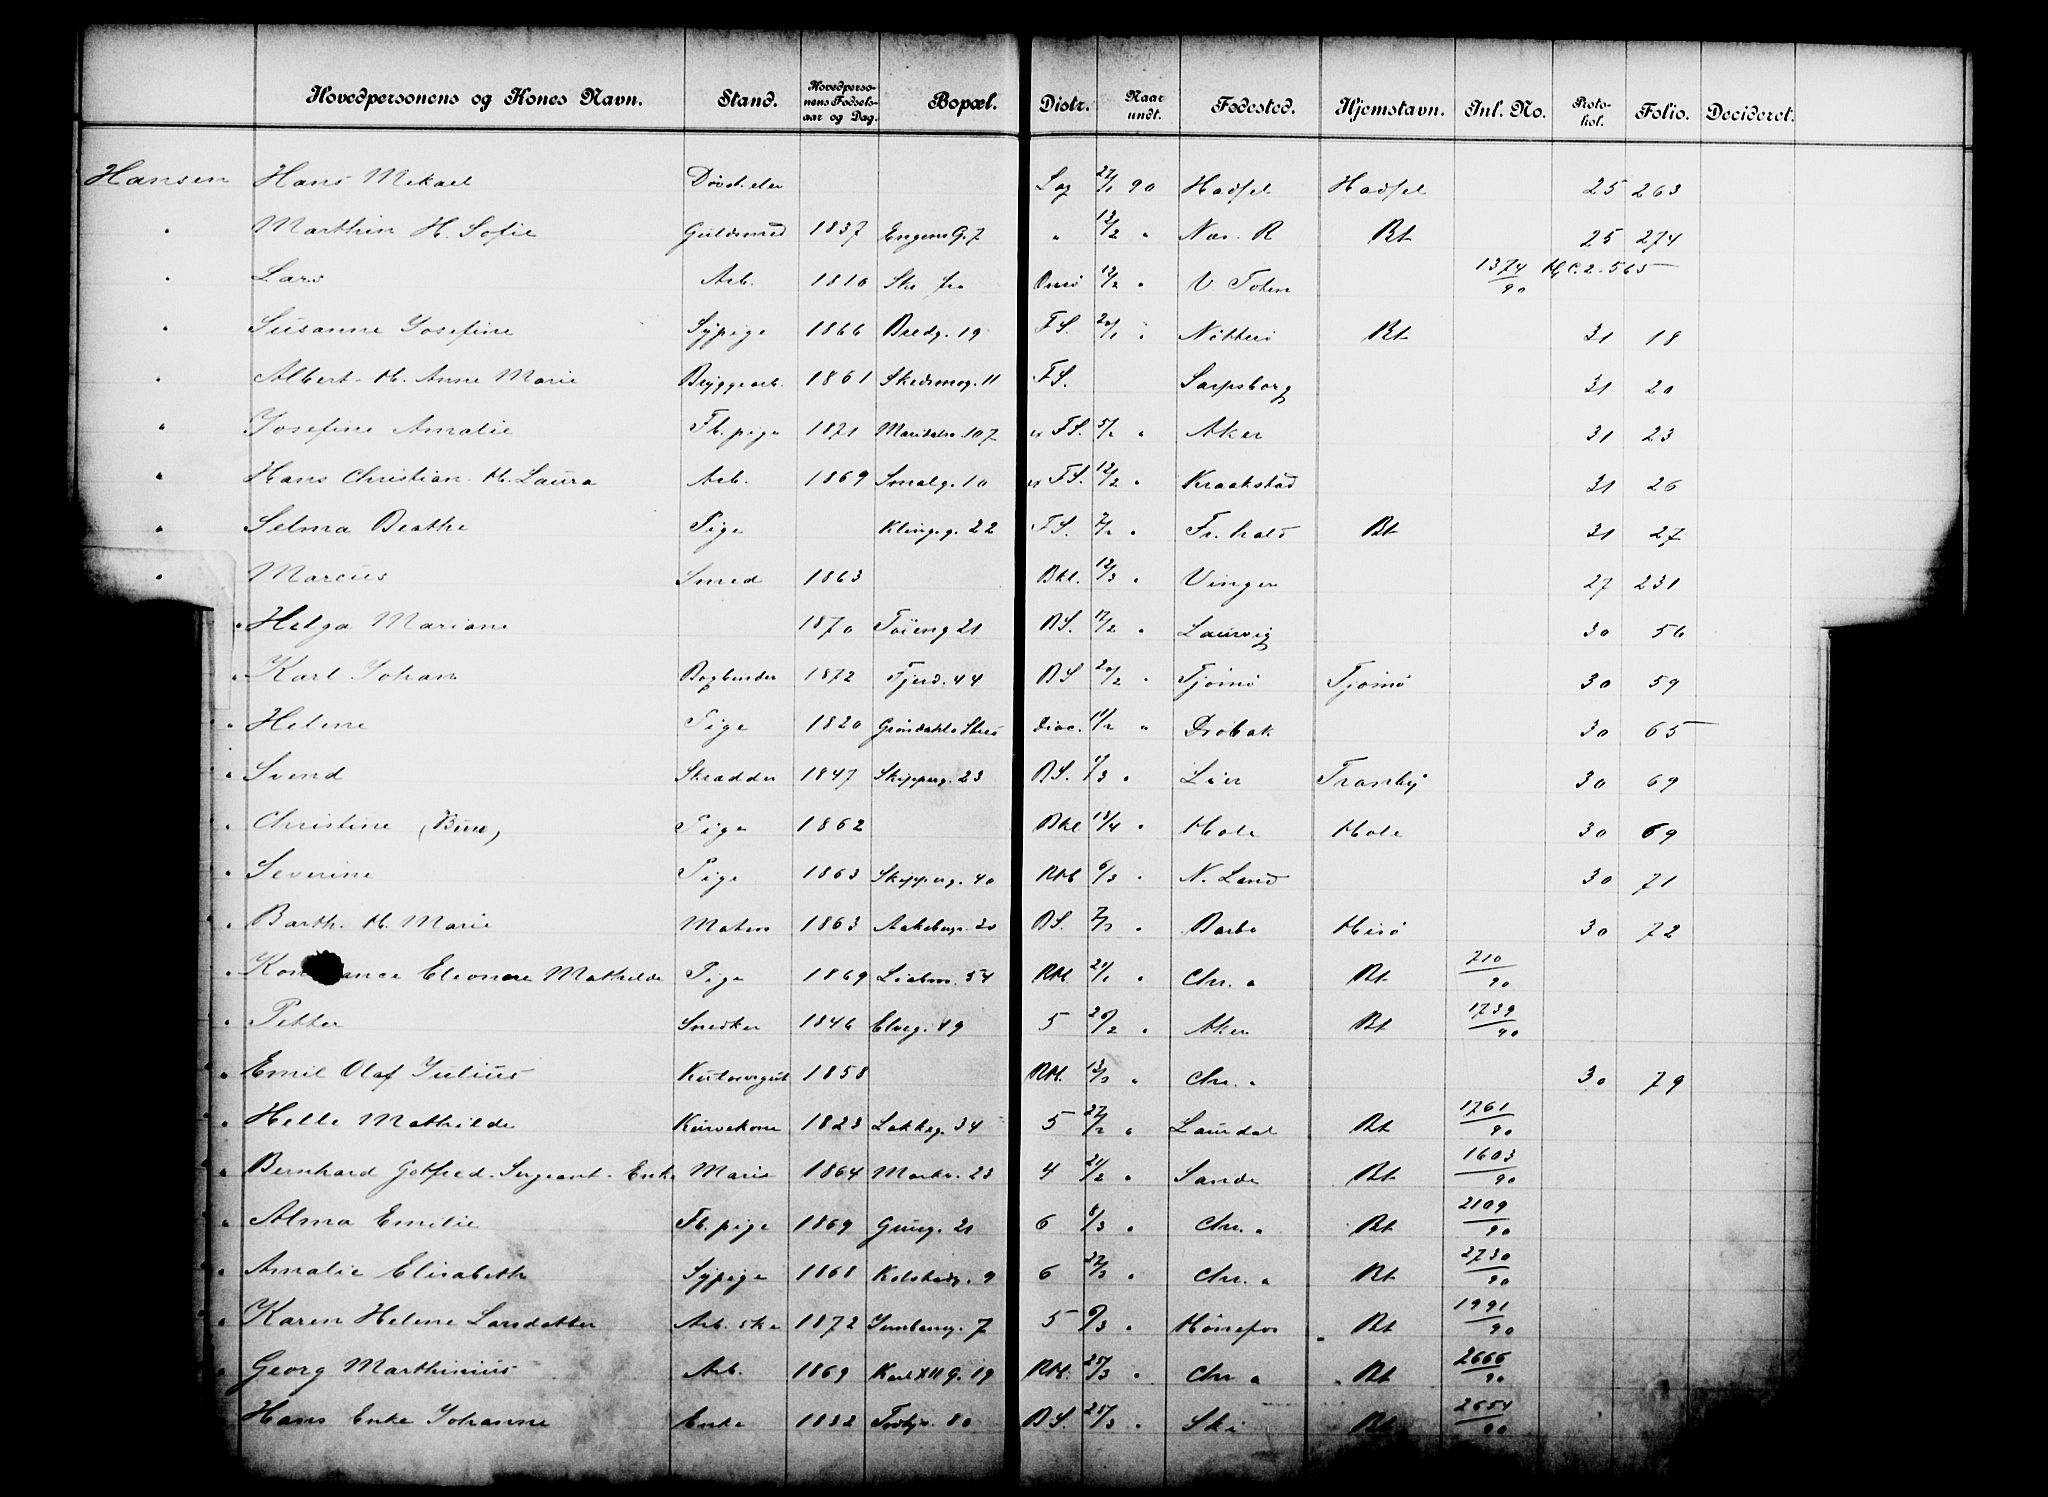 Hovedpersonens og Kones Navn. Stand. Hovedpersonens Fødselsaar og Dag. Bopæl. Distr. Naar undt. Fødested. Hjemstavn. Inl. No. Protokol. Folio. Decideret.
Hansen Hans Mikael 27/1 90 Hadsel Hadsel 25 263
" Marthin H. Sofie Guldsmed 1837 Engens G. 7 " 12/2 " Næs. R Bt 25 274
" Lars Arb. 1810 12/2 " V Toten 1374/90 H.C. 2. 565
" Susanne Josefine Sypige 1866 Bredg. 19 F.S. 20/1 " Nötterö Bt 31 18
" Albert. H. Anne Marie Bryggearb. 1861 Skedsmog. 11 F.S. Sarpsborg 31 20
" Josefine Amalie Fb. pige 1871 Maridalsv. 107 F.S. 5/2 " Aker 31 23
" Hans Christian. H. Laura Arb. 1869 Smalg. 10 F.S. 12/2 " Kraakstad 31 26
" Selma Beathe Pige Klingeg. 22 F.S. 7/2 " Fr. hald Bt 31 27
" Marcus Smed 1863 Bkl. 12/3 " Vinger 27 231
" Helga Mariane 1870 Töieng 21 B.S. 17/2 " Laurvig 30 56
" Karl Johan Bogbinder 1872 Fjerd. 44 B.S 20/2 " Tjömö Tjömö 30 59
" Helene Pige 1820 Gröndahls Diac. 11/2 " Dröbak 30 65
" Svend Skrædder 1847 Skipperg. 23 B.S. " Lier Tranby 30 69
" Christine Pige 1862 Bkl 13/4 " Hole Hole 30 69
" Severine Pige 1863 Skipperg. 40 RH 6/3 " N. Land 30 71
" Barth. H. Marie Matros 1863 Aakebergv. 20 B.S. 7/3 " Barbo Hisö 30 72
" Kon ance Eleonore Mathilde Pige 1869 54 RH. 21/1 " Chr. a Bt 710/90
" Petter Snedker 1846 Elveg. 49 5 26/2 " Aker Bt 1739/90
" Emil Olaf Julius 1858 RH. 13/3 " Chr. a 30 79
" Helle Mathilde Kurvekone 1823 Lakkeg. 34 5 27/2 " Laurdal Bt 1761/90
" Bernhard Gotfred. Sergeant. Enke Marie 1864 Markv. 23 4 21/2 " Sande Bt 1603/90
" Alma Emilie Fb. pige 1869 Grüng. 21 6 8/3 " Chr. a Bt 2109/90
" Amalie Elisabeth Sypige 1868 Kolstadg. 9 6 27/3 " Chr. a Bt 2730/90
" Karen Helene Larsdatter Arb. ske 1872 7 5 6/3 " Hönefos Bt 1991/90
" Georg Marthinius Arb. 1869 Karl XII G. 19 RH. 25/3 " Chr. a Bt 2666/90
Hans Enke Johanne Enke 1832 Trondhjv. 80 B.S. 25/3 " Ski Bt 2654/90